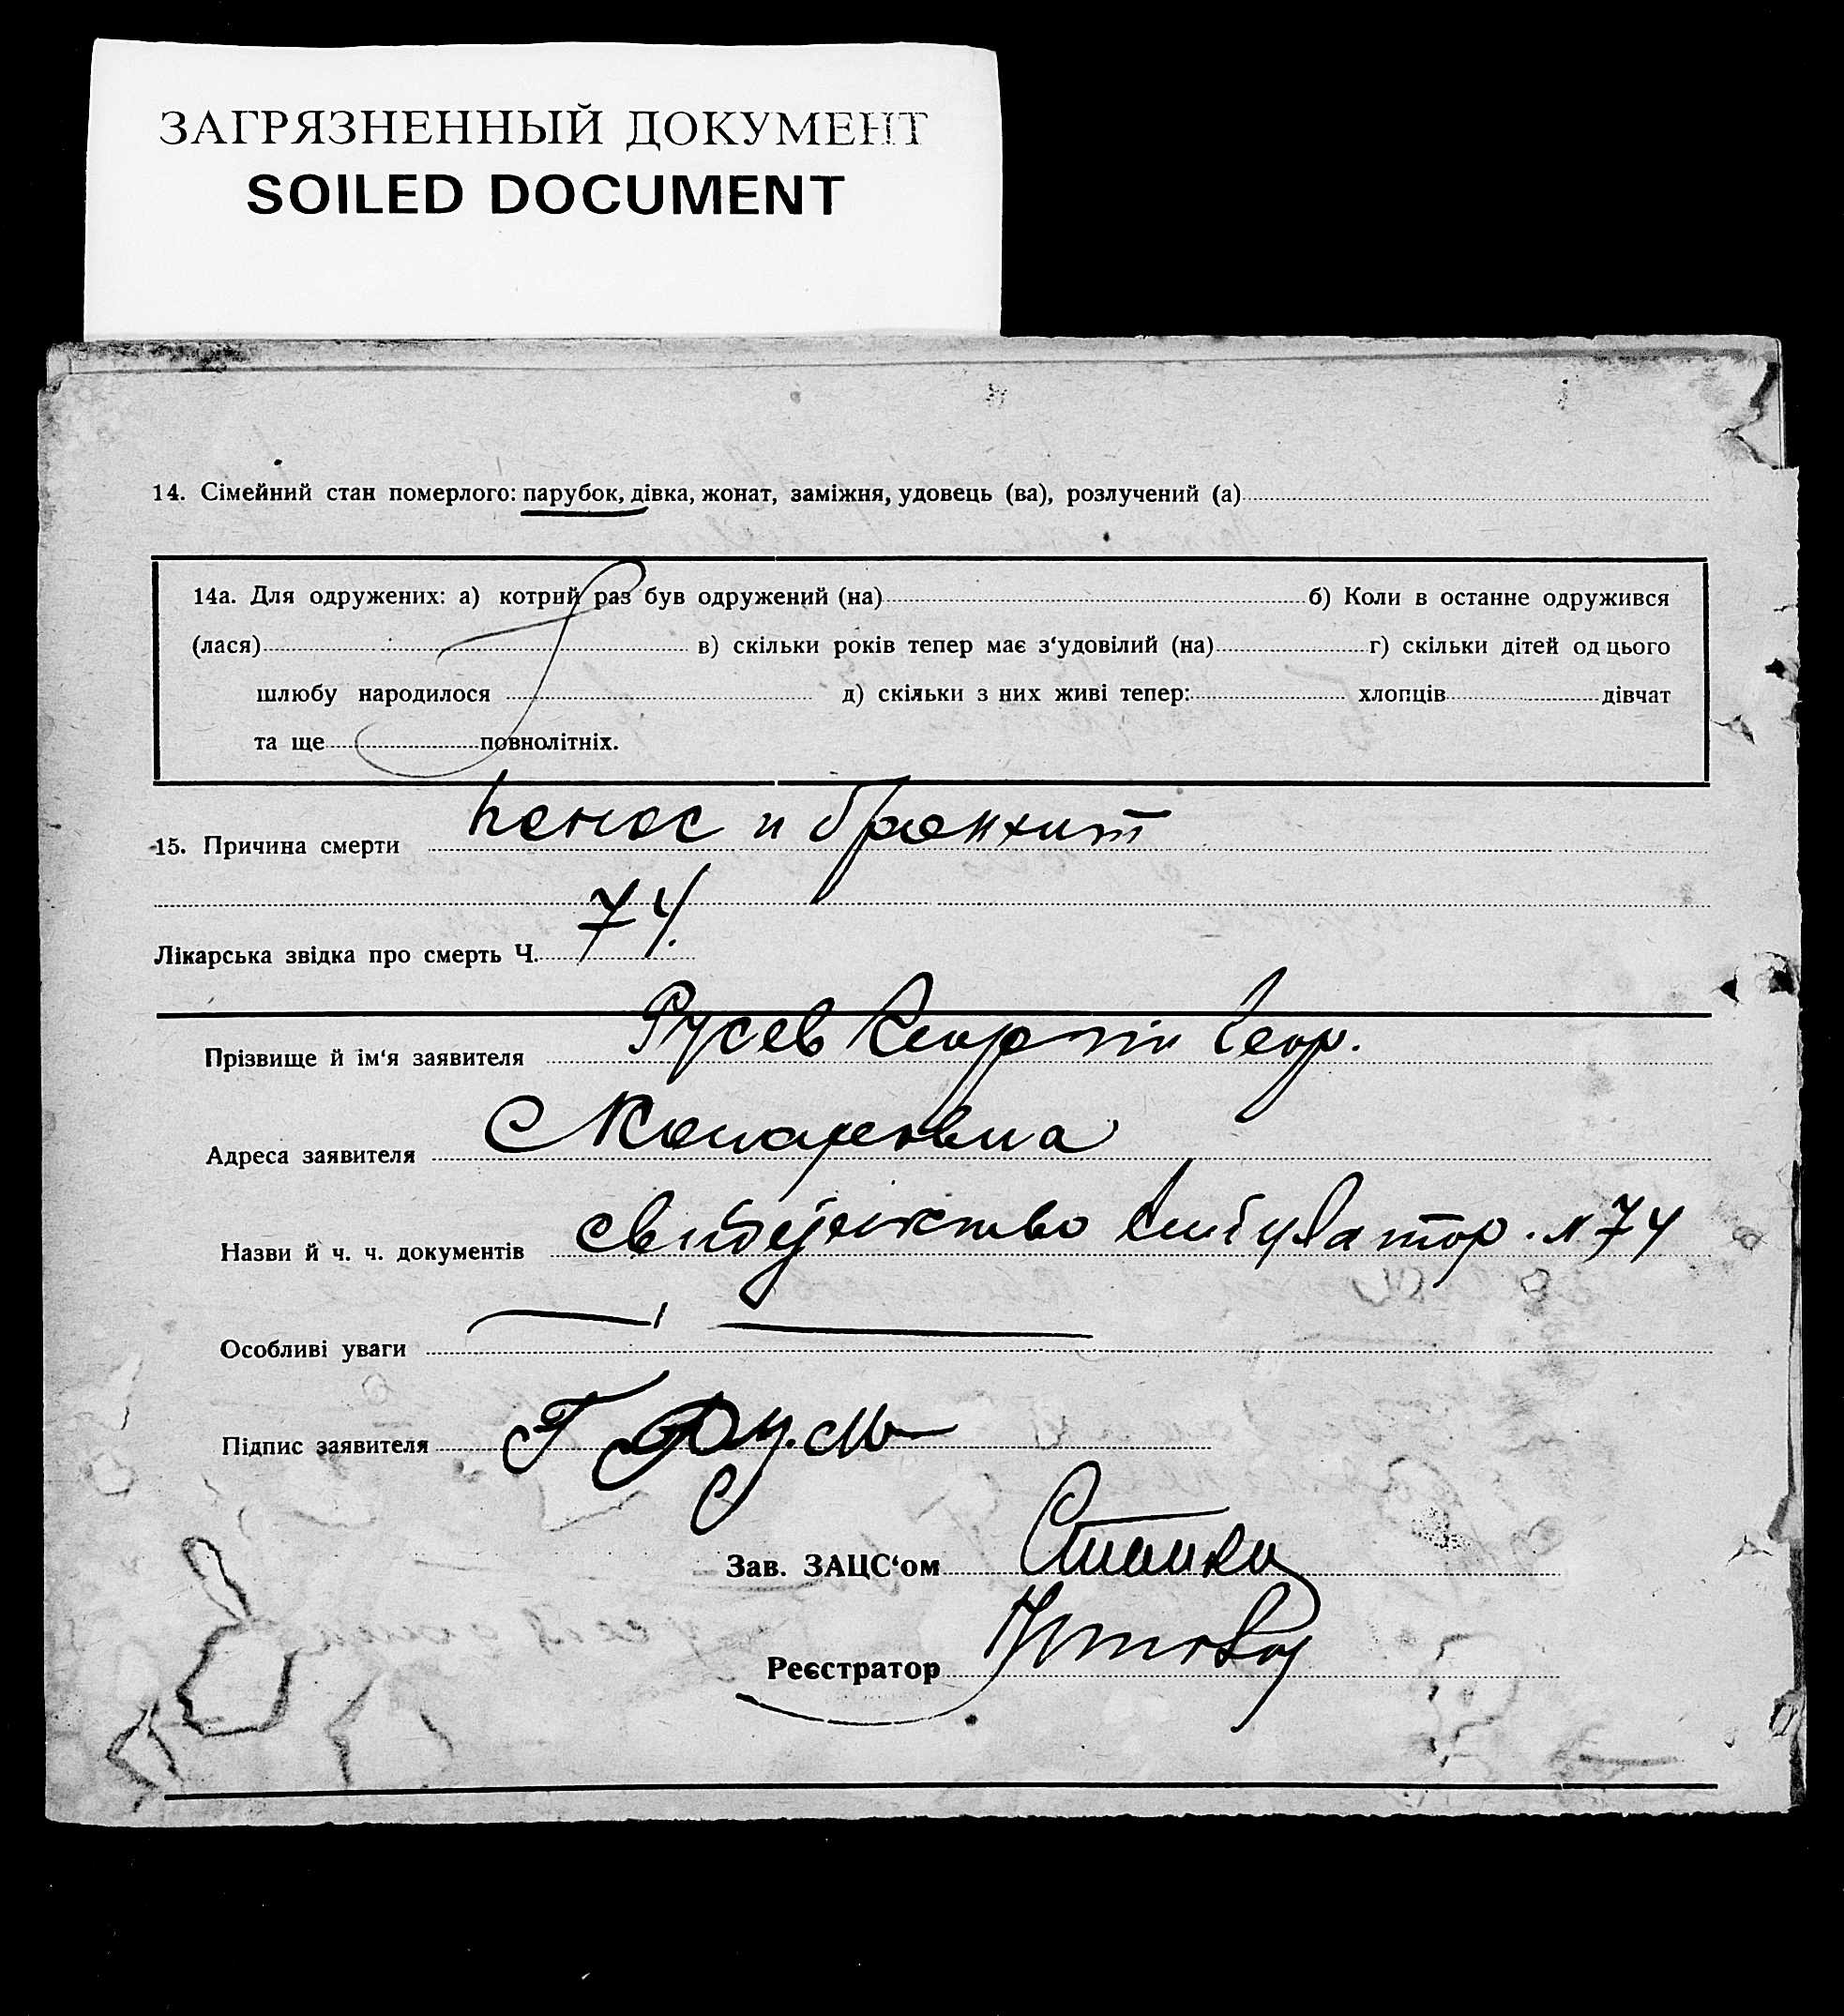 ЗАГРЯЗНЕННЫЙ ДОКУМЕНТ
SOILED DOCUMENT
14. Сімейний стан померлого: парубок, дівка, жонат, заміжня, удовець (ва), розлучений (а)
14а. Для одружених: а) котрий раз був одружений (на) б) Коли в останне одружився
(лася) в) скільки років тепер має з‘удовілий (на) г) скільки дітей од цього
шлюбу народилося д) скільки з них живі тепер: хлопців дівчат
та ще повнолітніх.
15. Причина смерти понос и бронхит
Лікарська звідка про смерть Ч. 74
Прізвище й ім‘я заявителя Русев Георгий Геор.
Адреса заявителя С
Назви й ч. ч. документів амбулатор. N 74
Особливі уваги
Підпис заявителя Г
Зав. ЗАЦС‘ом
Реєстратор